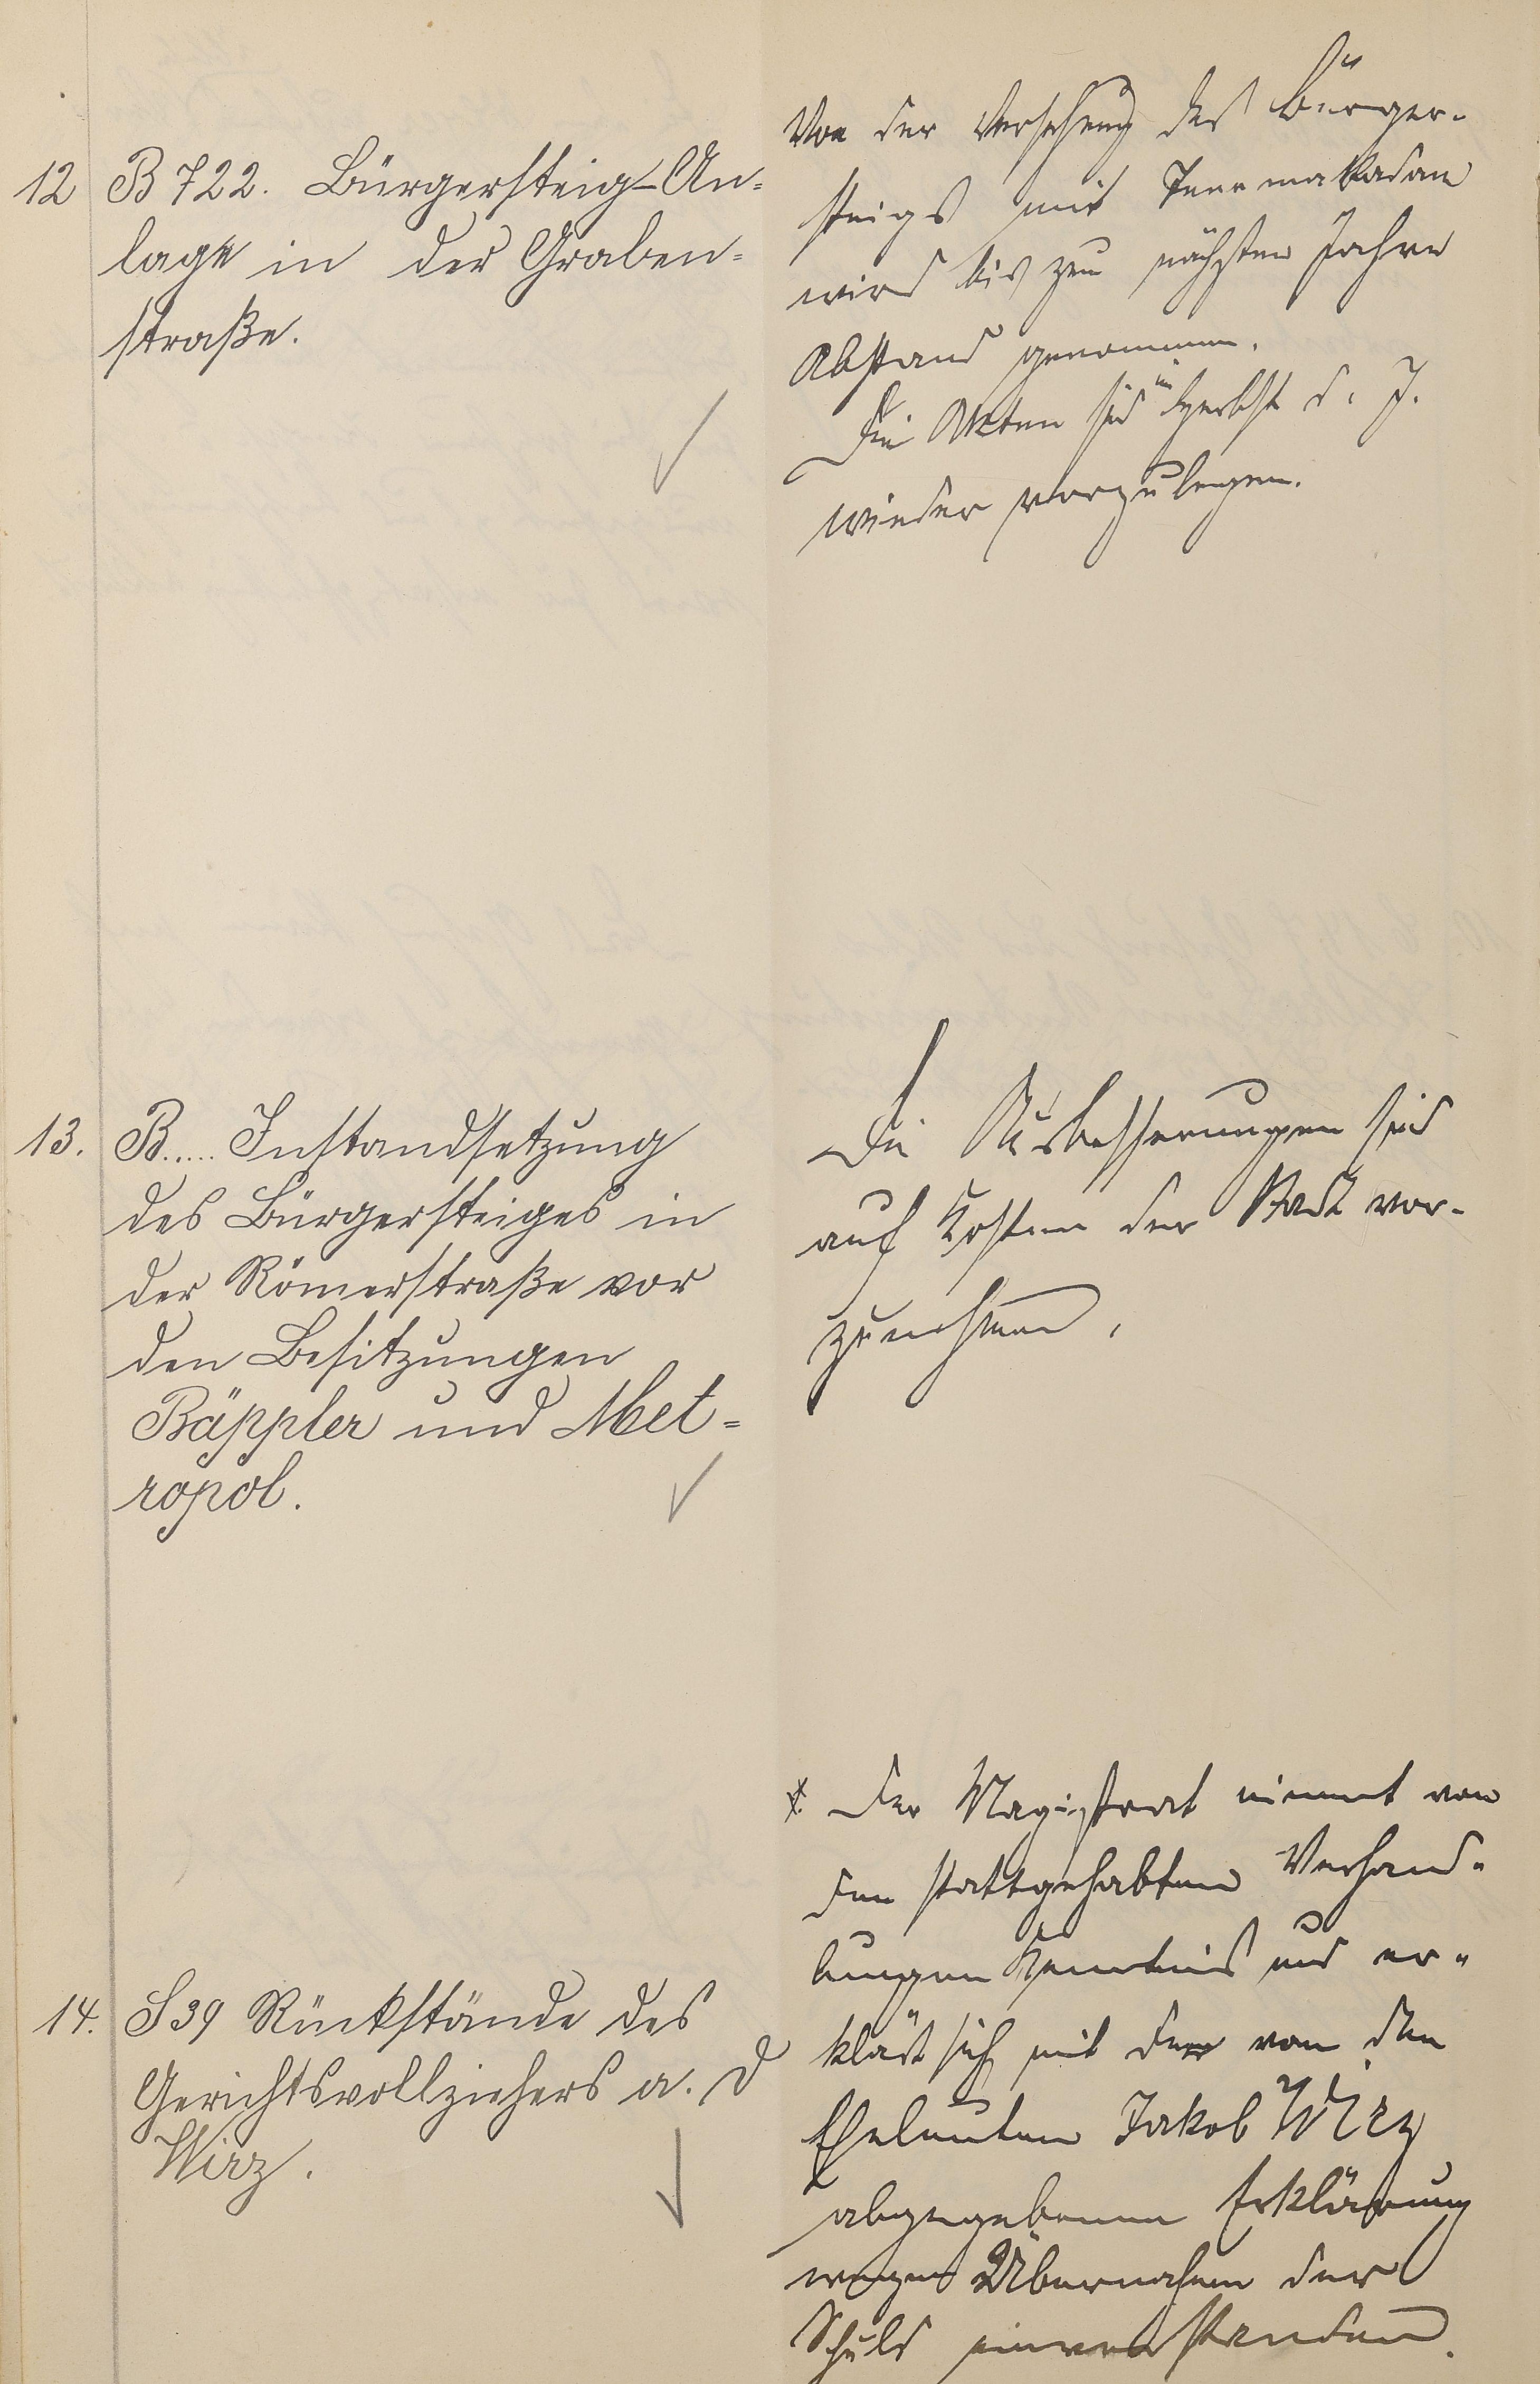 12 B 722. Bürgersteig-An-
lage in der Graben-
straße.
Von der Versehung des Bürger-
steigs mit Teermakadam
wird bis zum nächsten Jahre
Abstand genommen.
Die Akten sind im Herbst d. J.
wieder vorzulegen.
13. B..... Instandsetzung
des Bürgersteiges in
der Römerstraße vor
den Besitzungen
Bäppler und Met-
ropol.
Die Ausbesserungen sind
auf Kosten der Stadt vor-
zunehmen.
14. S 39 Rückstände des
Gerichtsvollziehers a. D
Wirz.
Der Magistrat nimmt von
den stattgehabten Verhand-
lungen Kenntnis und er-
klärt sich mit der von den
Eheleuten Jakob Wirz
abgegebenen Erklärung
wegen Übernahme der
Schuld einverstanden.